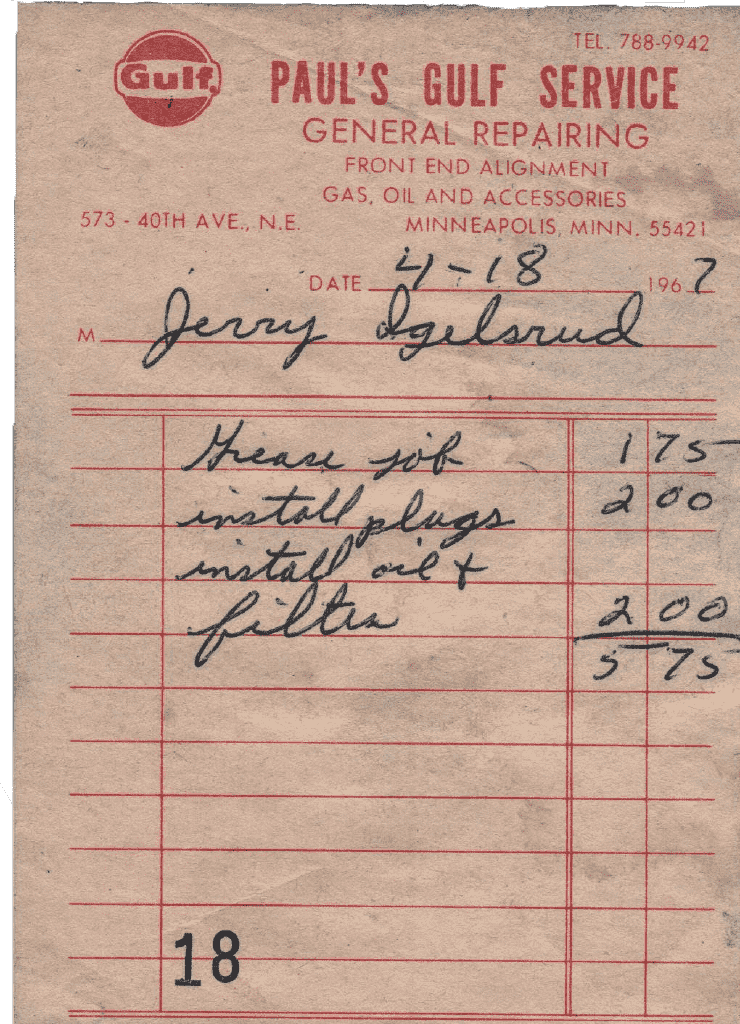 TEL. 788-9942
Gulf
PAUL'S GULF SERVICE
GENERAL REPAIRING
FRONT END ALIGNMENT
GAS, OIL AND ACCESSORIES
573 - 40TH AVE., N.E. MINNEAPOLIS, MINN. 55421
DATE 4-18 1967
M Jerry Igelsrud
Grease job 1 75
install plugs 2 00
install oil &
filter 2 00
5 75
18